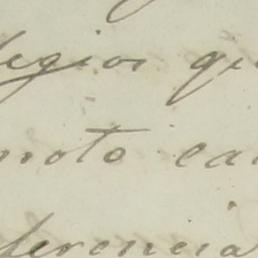 legios que
moto ca
ferencia